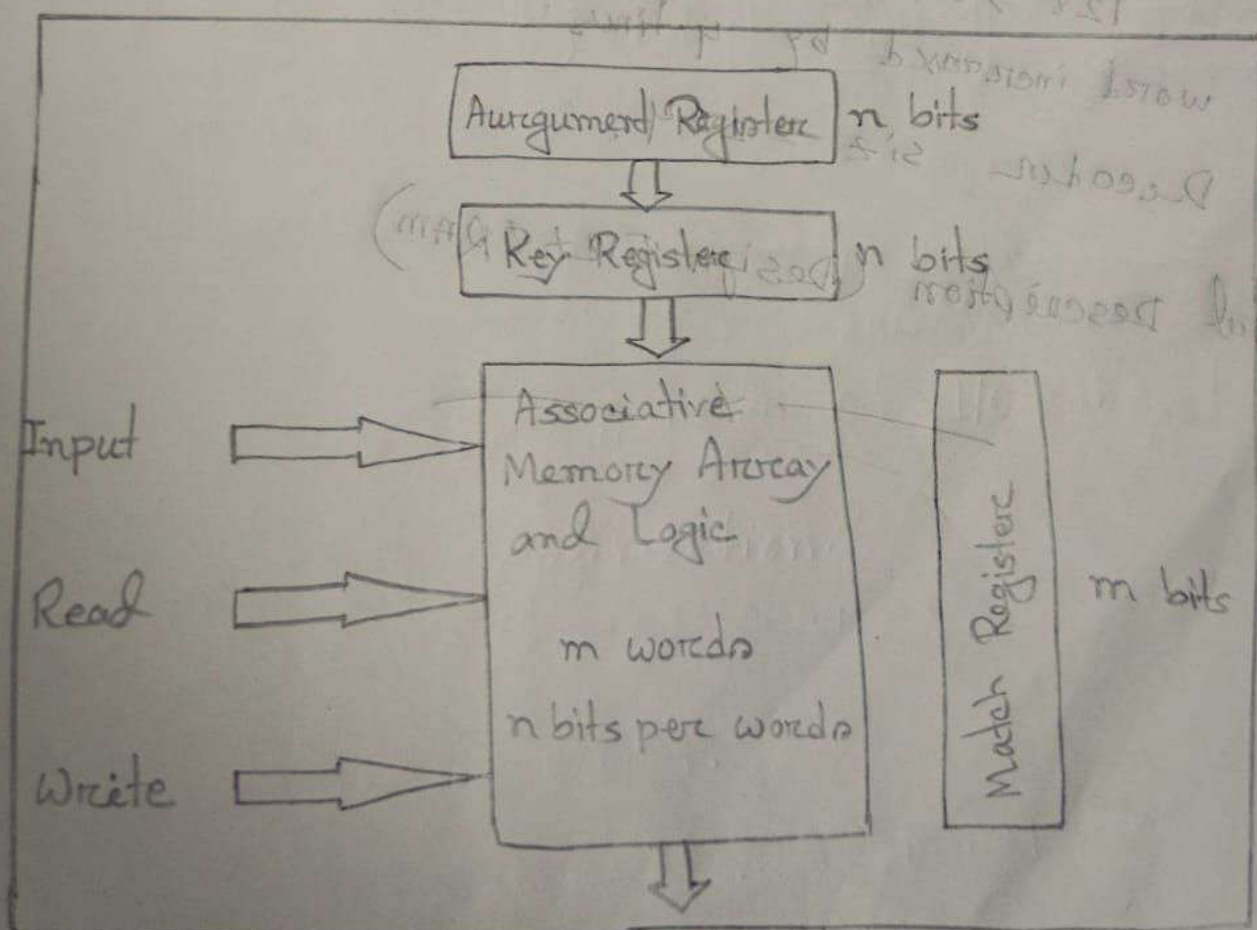 Aurgument Register n bits
Key Register n bits
Input
Associative
Memory Array
and Logic
Read
m words
n bits per words
Write
Match Register
m bits